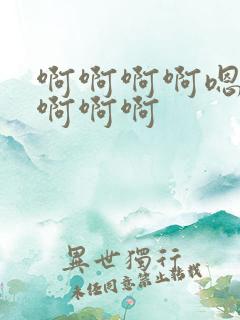 啊啊啊啊嗯
啊啊啊
異世獨行
未经同意禁止转载